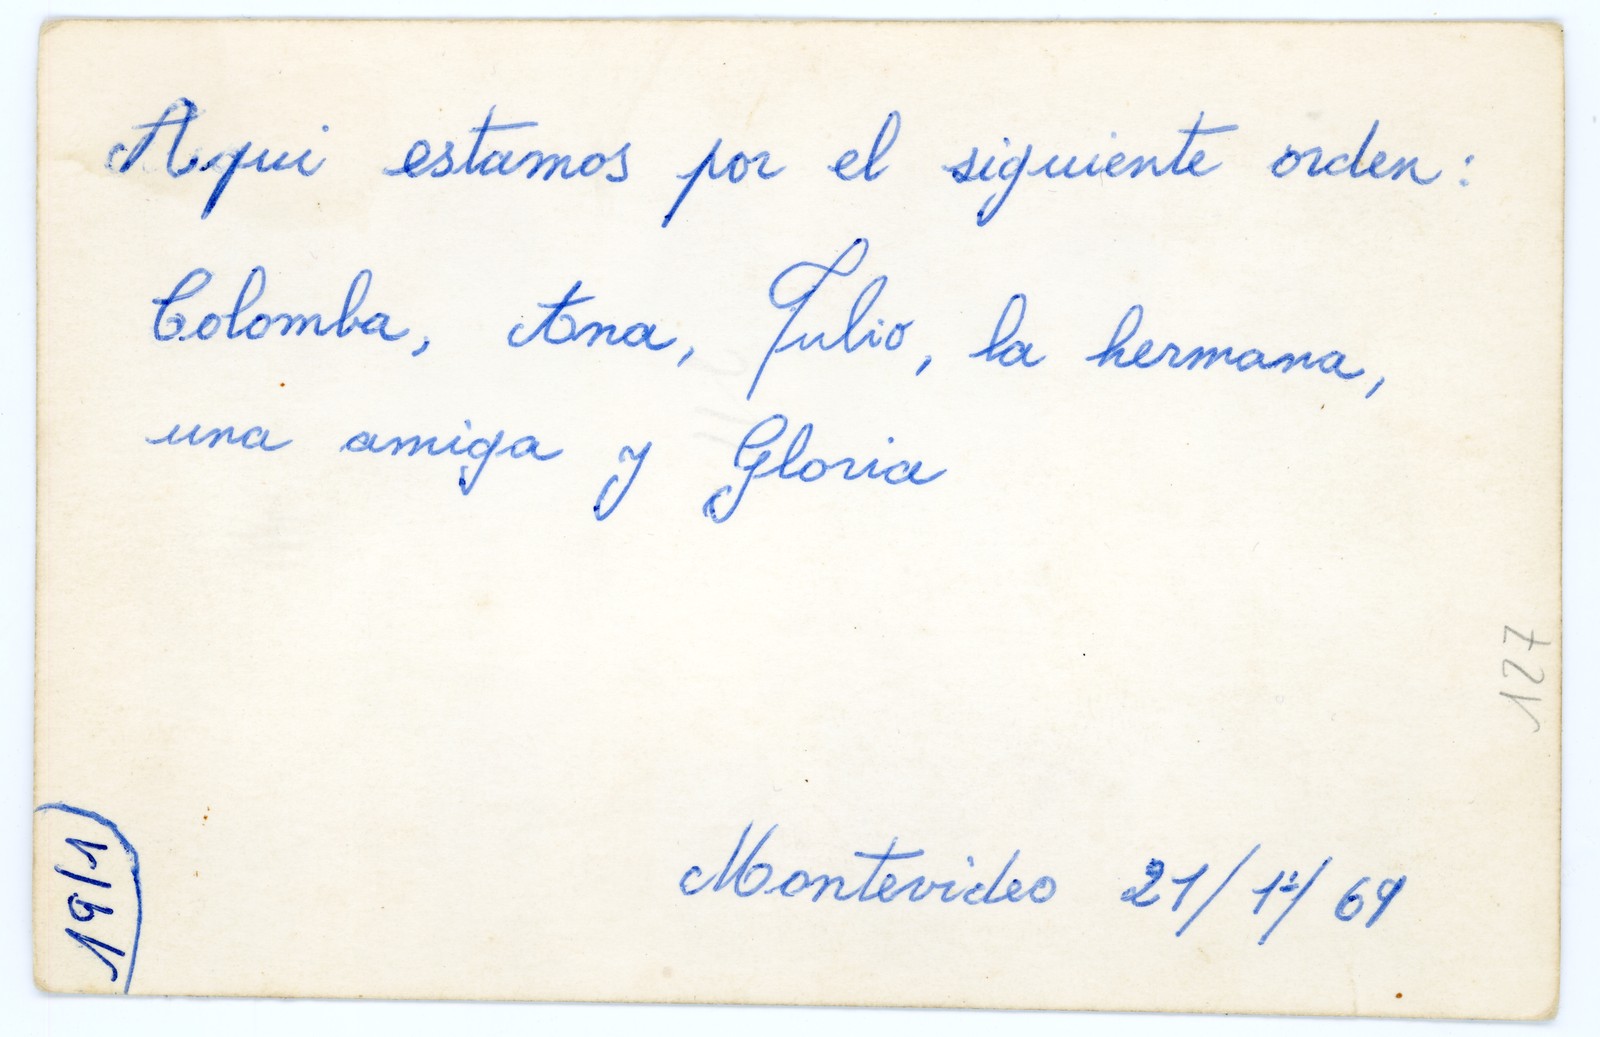 Aqui estamos por el siguiente orden:
Colomba, Ana, Julio, la hermana,
una amiga y Gloria
127
Montevideo 21/1º/69
19/1